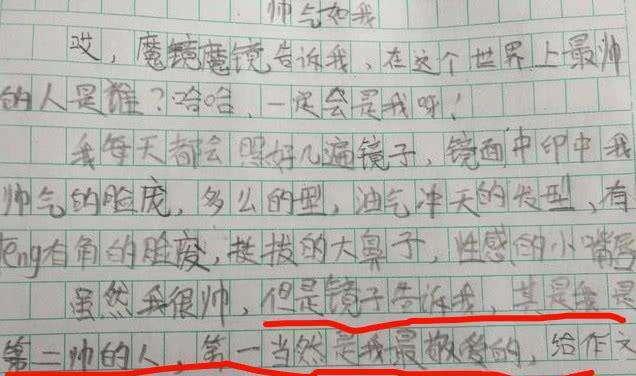 帅气如我
哎，魔镜魔镜告诉我、在这个世界上最帅
的人是谁？哈哈，一定会是我呀！
我每天都会照好几遍镜子，镜面中印中我
帅气的脸庞，多么的型，油气冲天的发型，有
leng有角的脸庞，挺拔的大鼻子，性感的小嘴唇
虽然我很帅，但是镜子告诉我，其是我是
第二帅的人，第一当然是我最敬爱的，给作文